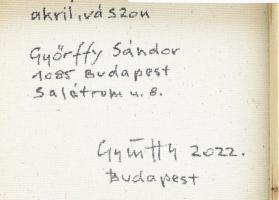 akril, vászon
Győrffy Sándor
1085 Budapest
Salétrom u. 8.
Győrffy 2022.
Budapest